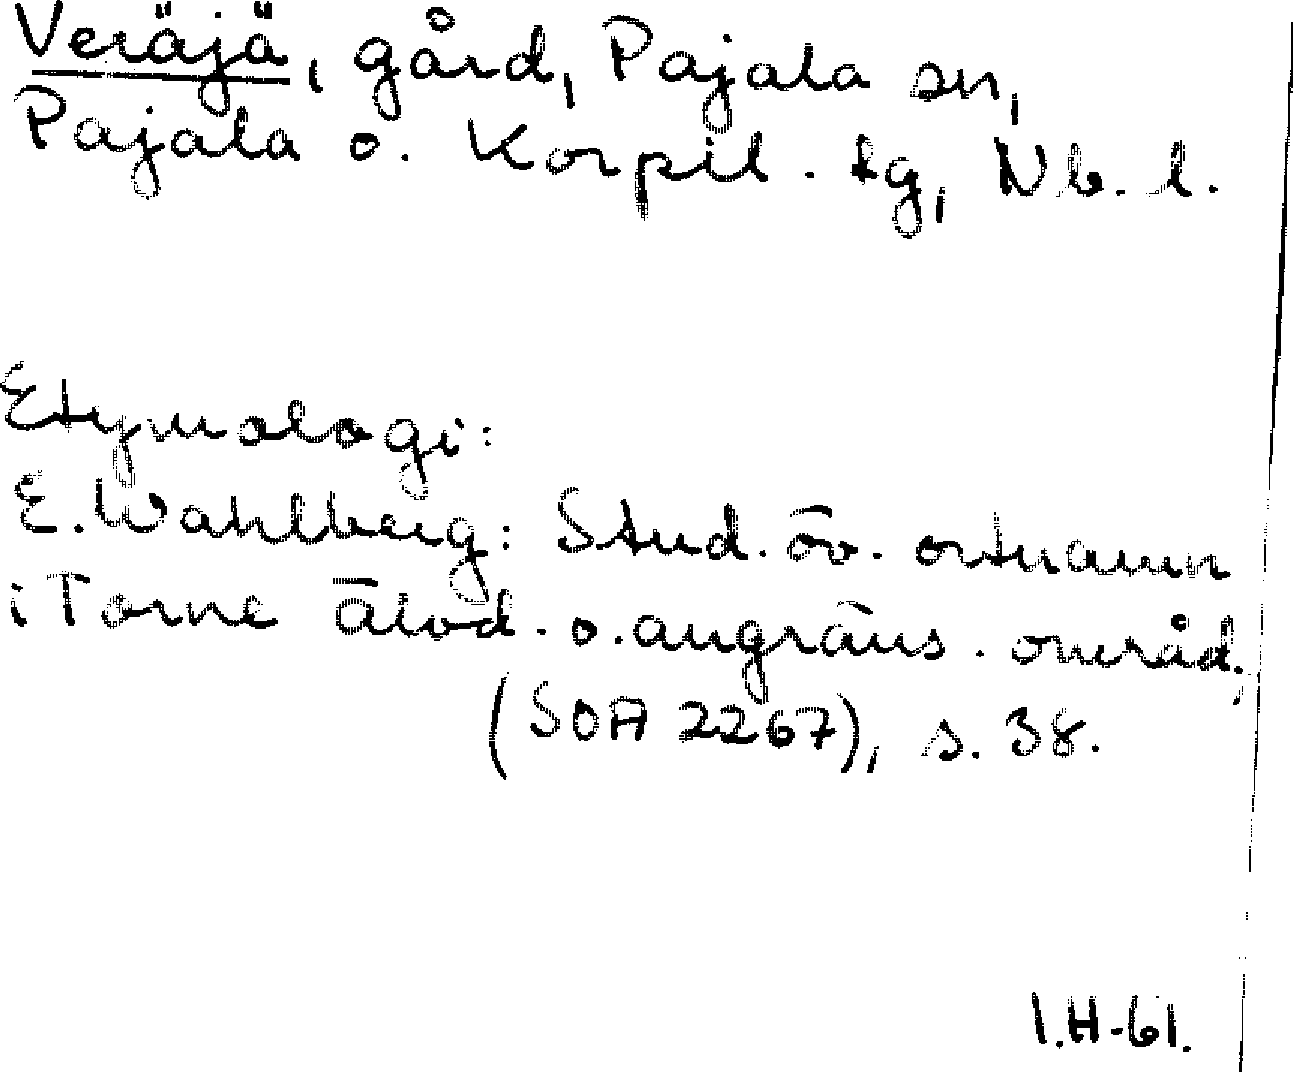 Veräjä, gård, Pajala sn,
Pajala o. Korpil. tg, Nb. l.
Etymologi:
E. Wahlberg: Stud. öv. ortnamn
i Torne älvd. o. angräns. områd.,
(SOA 2267), s. 38.
I.H-61.